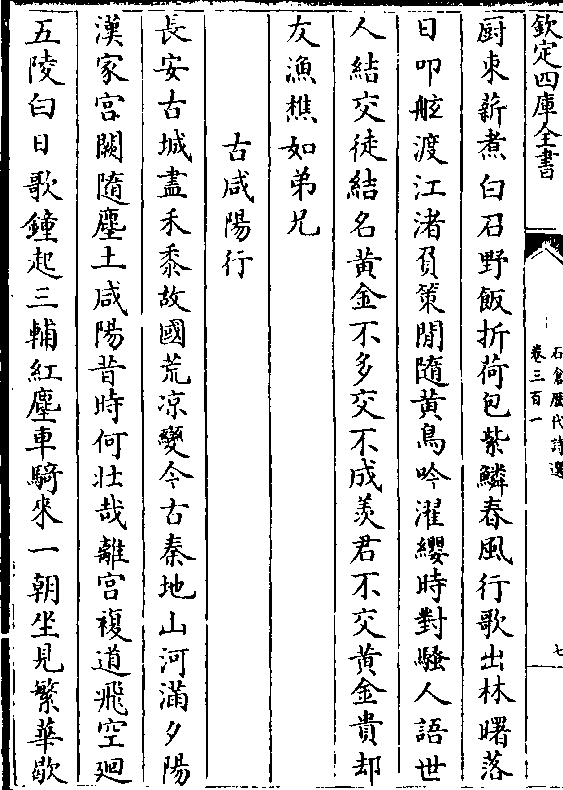 欽定四庫全書
石倉歴代詩選
卷三百一
七
厨束薪煮白石野飯折荷包紫鱗春風行歌出林曙落
日叩舷渡江渚負策閒隨黄鳥吟濯纓時對騷人語世
人結交徒結名黄金不多交不成羨君不交黄金貴却
友漁樵如弟兄
古咸陽行
長安古城盡禾黍故國荒凉變今古秦地山河滿夕陽
漢家宫闕隨塵土咸陽昔時何壯哉離宫複道飛空廻
五陵白日歌鐘起三輔紅塵車騎來一朝坐見繁華歇